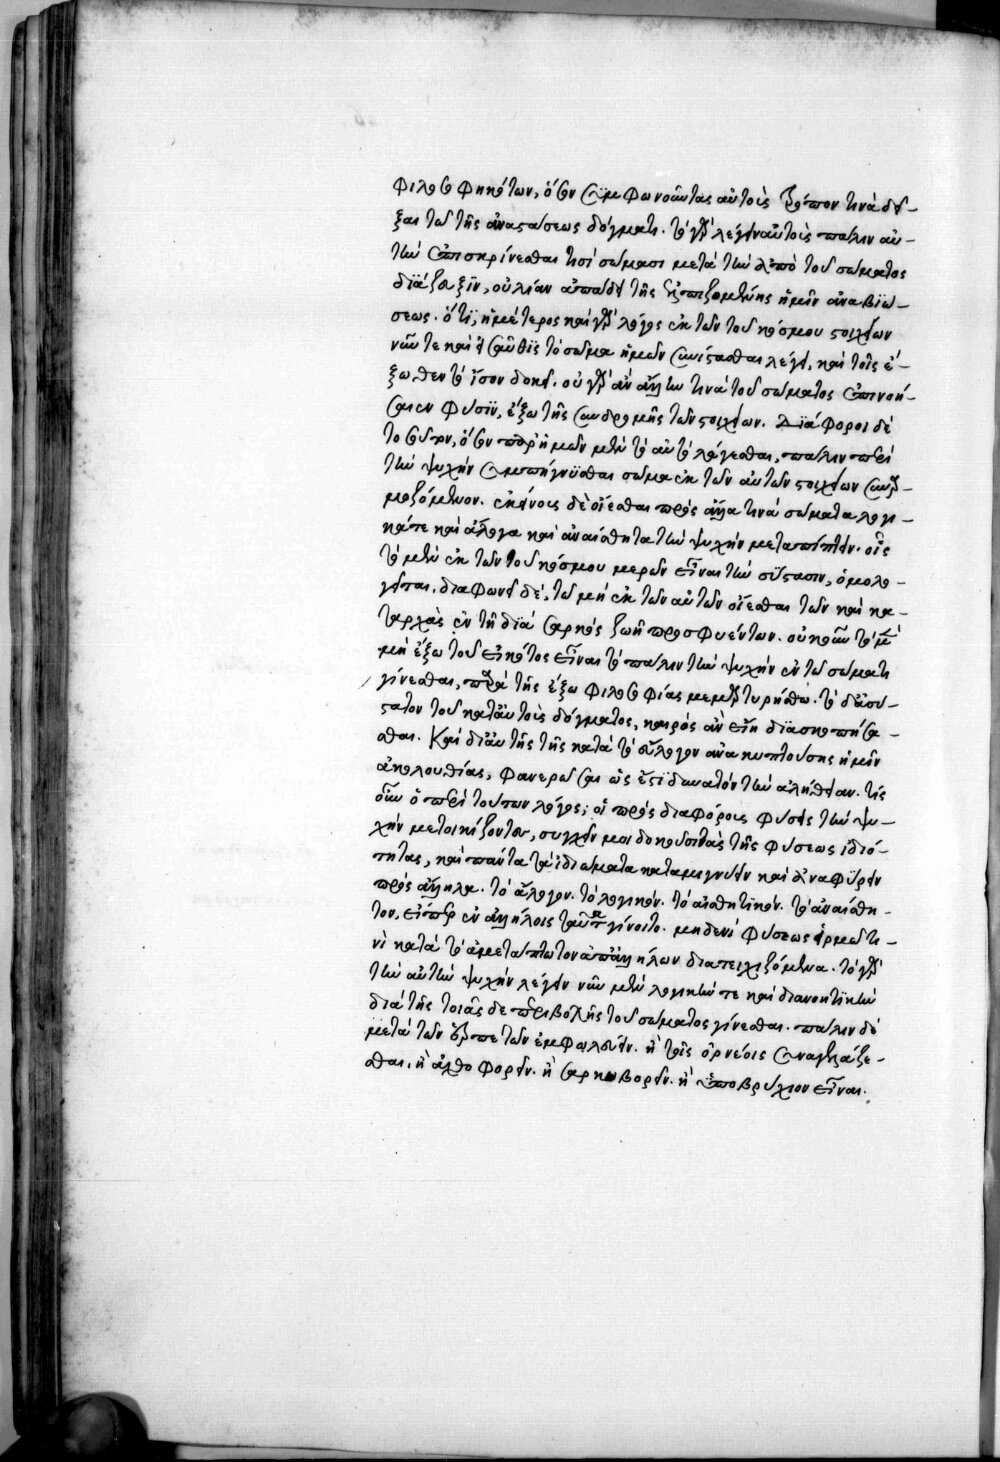 φιλοσοφηκότων, ὅσον συμφωνοῦντας αὐτοὺς τρόπον τινὰ δεῖ-
ξαι τῷ τῆς ἀναστάσεως δόγματι. τὸ γὰρ λέγειν αὐτοὺς πάλιν αὐ-
τὴν ἐπεισκρίνεσθαι τισὶ σώμασι μετὰ τὴν ἀπὸ τοῦ σώματος
διάζευξϊν, οὐ λίαν ἀπάδει τῆς ἐλπιζομένης ἡμῖν ἀναβιώ-
σεως. ὅτε, ἡμέτερος καὶ γὰρ λόγος ἐκ τῶν τοῦ κόσμου στοιχείων
νῦν τε καὶ εἰσαῦθϊς τὸ σῶμα ἡμῶν συνίστασθαι λέγει, καὶ τοῖς ἔ-
ξωθεν τὸ ἴσον δοκεῖ. οὐ γὰρ ἂν ἄλλην τινὰ τοῦ σώματος ἐπινοή-
σαιεν φύσϊν, ἔξω τῆς συνδρομῆς τῶν στοιχείων. Διάφοροι δὲ
τοσοῦτον, ὅσον παρ' ἡμῶν μὲν τὸ αὐτὸ λέγεσθαι, πάλιν περὶ
τὴν ψυχὴν συμπήγνυσθαι σῶμα ἐκ τῶν αὐτῶν στοιχείων συναρ-
μοζόμενον. ἐκείνους δὲ οἴεσθαι πρὸς ἄλλα τινὰ σώματα λογι-
κά τε καὶ ἄλογα καὶ ἀναίσθητα τὴν ψυχὴν μεταπίπτειν. οἷς
τὸ μὲν ἐκ τῶν τοῦ κόσμου μερῶν εἶναι τὴν σύστασιν, ὁμολο-
γεῖται. διαφωνεῖ δέ, τῷ μὴ ἐκ τῶν αὐτῶν οἴεσθαι τῶν καὶ κα-
ταρχὰς ἐν τῇ διὰ σαρκὸς ζωῇ προσφυέντων. οὐκοῦν τὸ μὲν
μὴ ἔξω τοῦ εἰκότος εἶναι τὸ πάλιν τὴν ψυχὴν ἐν τῷ σώματι
γίνεσθαι, παρὰ τῆς ἔξω φιλοσοφίας μεμαρτυρήσθω. τὸ δ' ἀσύ-
στατον τοῦ κατ' αὐτοὺς δόγματος, καιρὸς ἂν εἴη διασκοπήσα-
σθαι. Καὶ δι' αὐτῆς τῆς κατὰ τὸ εὔλογον ἀνακυπτούσης ἡμῖν
ἀκολουθίας, φανερῶσαι ὡς ἔστϊ δυνατὸν τὴν ἀλήθειαν. τίς
οὖν ὁ περὶ τούτων λόγος; οἱ πρὸς διαφόρους φύσεις τὴν ψυ-
χὴν μετοικίζοντες, συγχεῖν μοι δοκοῦσι τὰς τῆς φύσεως ἰδιό-
τητας, καὶ πάντα τὰ ἰδιώματα καταμιγνύειν καὶ ἀναφύρειν
πρὸς ἄλληλα. τὸ ἄλογον. τὸ λογικόν. τὸ αἰσθητικόν. τὸ ἀναίσθη-
τον, εἴπερ ἐν ἀλλήλοις ταῦτα γίνοιτο. μηδενὶ φύσεως εἱρμῷ τι-
νὶ κατὰ τὸ ἀμετάπτωτον ἀπ' ἀλλήλων διατειχιζόμενα. τὸ γὰρ
τὴν αὐτὴν ψυχὴν λέγειν νῦν μὲν λογικήν τε καὶ διανοητϊκὴν
διὰ τῆς τοιᾶσδε περιβολῆς τοῦ σώματος γίνεσθαι. πάλιν δὲ
μετὰ τῶν ἑρπετῶν ἐμφωλεύειν. ἢ τοῖς ὀρνέοις συναγελάζε-
σθαι. ἢ ἀχθοφορεῖν. ἢ σαρκοβορεῖν. ἢ ὑποβρύχιον εἶναι.